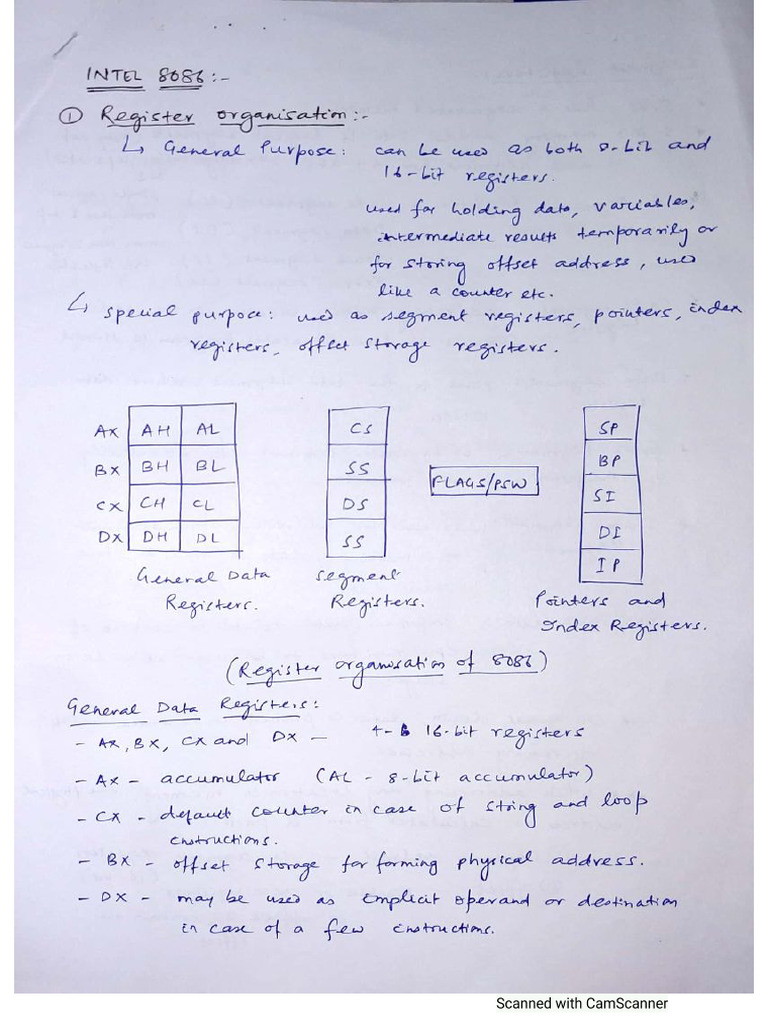 INTEL 8086:-
① Register organisation:-
↳ General Purpose: can be used as both 8-bit and
16-bit registers.
used for holding data, variables,
intermediate results temporarily or
for storing offset address, used
like a counter etc.
↳ special purpose: used as segment registers, pointers, index
registers, offset storage registers.
AX AH AL
BX BH BL
CX CH CL
DX DH DL
General Data
Registers.
CS
SS
DS
SS
Segment
Registers.
FLAGS/PSW
SP
BP
SI
DI
IP
Pointers and
Index Registers.
(Register organisation of 8086)
General Data Registers:
- AX, BX, CX and DX - 4- 16-bit registers
- AX - accumulator (AL - 8-bit accumulator)
- CX - default counter in case of string and loop
instructions.
- BX - offset storage for forming physical address.
- DX - may be used as implicit operand or destination
in case of a few instructions.
Scanned with CamScanner